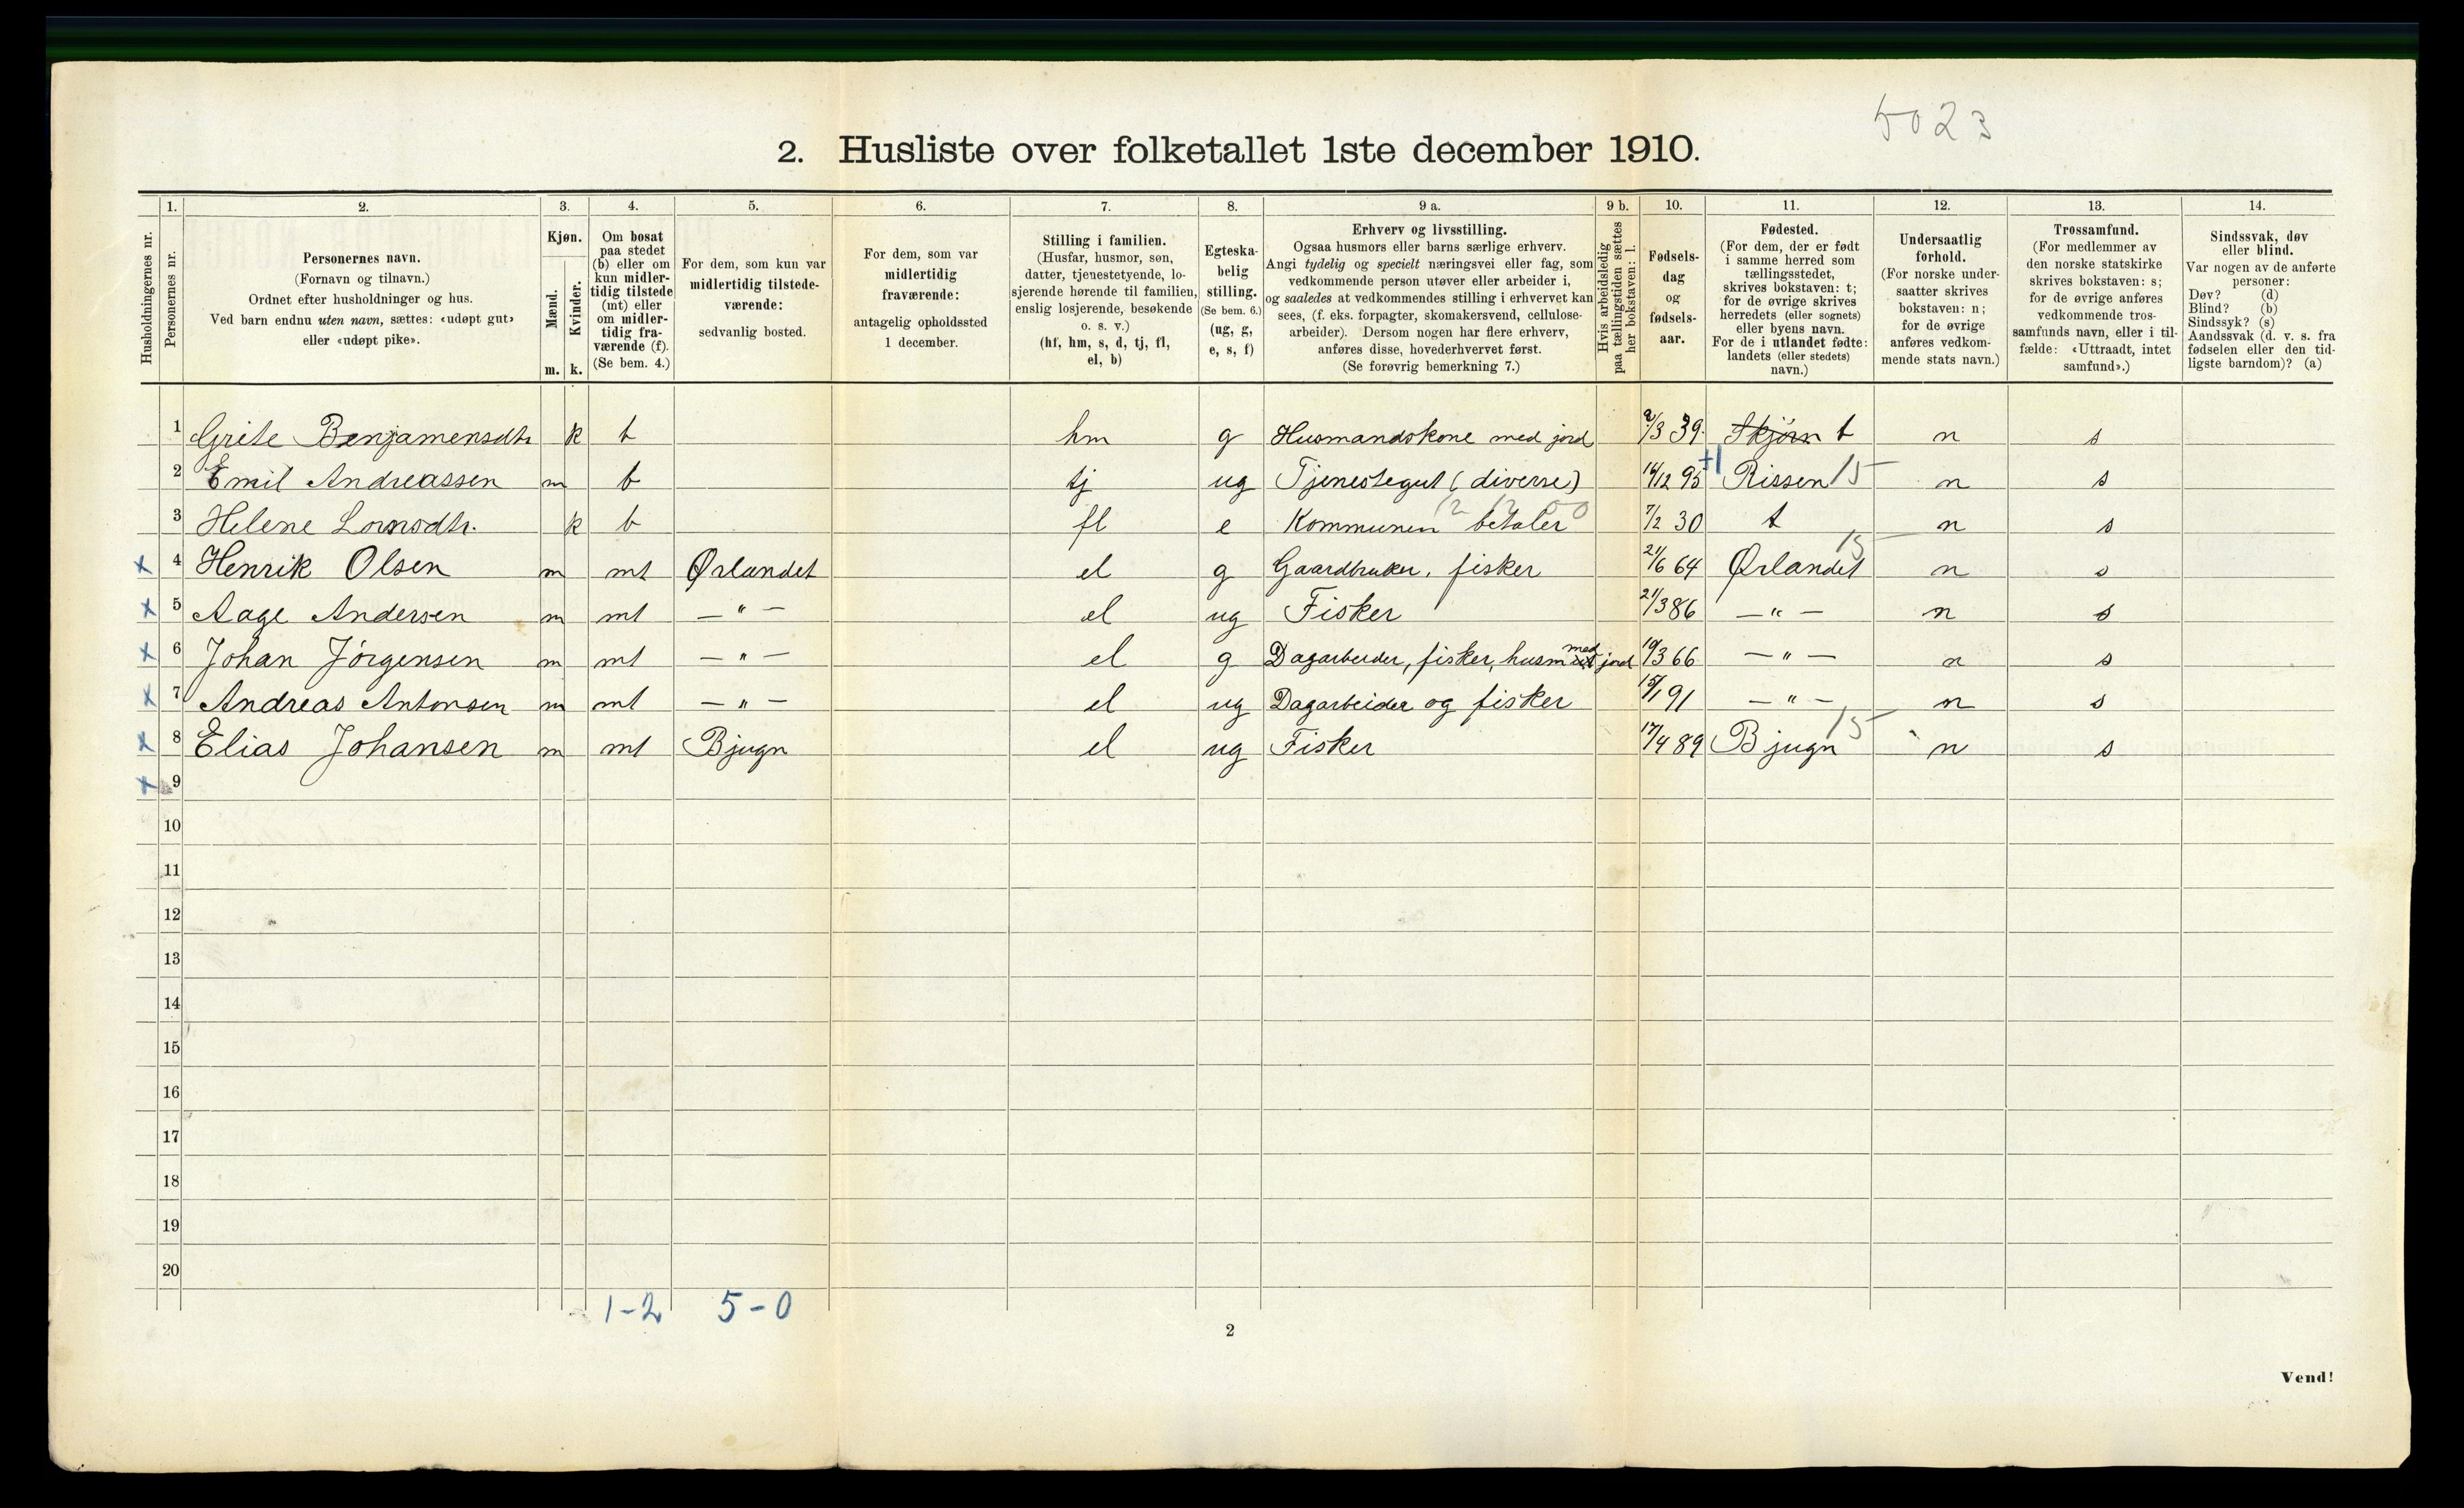 5023
2. Husliste over folketallet 1ste december 1910.
Husholdningernes nr.
1. Personernes nr.
2. Personernes navn.
(Fornavn og tilnavn.)
Ordnet efter husholdninger og hus.
Ved barn endnu uten navn, sættes: «udøpt gut»
eller «udøpt pike».
3. Kjøn.
Mænd. m.
Kvinder. k.
4. Om bosat
paa stedet
(b) eller om
kun midler-
tidig tilstede
(mt) eller
om midler-
tidig fra-
værende (f).
(Se bem. 4.)
5. For dem, som kun var
midlertidig tilstede-
værende:
sedvanlig bosted.
6. For dem, som var
midlertidig
fraværende:
antagelig opholdssted
1 december.
7. Stilling i familien.
(Husfar, husmor, søn,
datter, tjenestetyende, lo-
sjerende hørende til familien,
enslig losjerende, besøkende
o. s. v.)
(hf, hm, s, d, tj, fl,
el, b)
8. Egteska-
belig
stilling.
(Se bem. 6.)
(ug, g,
e, s, f)
9 a. Erhverv og livsstilling.
Ogsaa husmors eller barns særlige erhverv.
Angi tydelig og specielt næringsvei eller fag, som
vedkommende person utøver eller arbeider i,
og saaledes at vedkommendes stilling i erhvervet kan
sees, (f. eks. forpagter, skomakersvend, cellulose-
arbeider). Dersom nogen har flere erhverv,
anføres disse, hovederhvervet først.
(Se forøvrig bemerkning 7.)
9 b. Hvis arbeidsledig
paa tællingstiden sættes
her bokstaven: l.
10. Fødsels-
dag
og
fødsels-
aar.
11. Fødested.
(For dem, der er født
i samme herred som
tællingsstedet,
skrives bokstaven: t;
for de øvrige skrives
herredets (eller sognets)
eller byens navn.
For de i utlandet fødte:
landets (eller stedets)
navn.)
12. Undersaatlig
forhold.
(For norske under-
saatter skrives
bokstaven: n;
for de øvrige
anføres vedkom-
mende stats navn.)
13. Trossamfund.
(For medlemmer av
den norske statskirke
skrives bokstaven: s;
for de øvrige anføres
vedkommende tros-
samfunds navn, eller i til-
fælde: «Uttraadt, intet
samfund».)
14. Sindssvak, døv
eller blind.
Var nogen av de anførte
personer:
Døv? (d)
Blind? (b)
Sindssyk? (s)
Aandssvak (d. v. s. fra
fødselen eller den tid-
ligste barndom)? (a)
1 Grite Benjamensdtr k b hm g Husmandskone med jord 9/3 39. Skjørn t n s
2 Emil Andreassen m b tj ug Tjenestegut (diverse) 16/12 95 +1 Rissen 15 n s
3 Helene Lornsdtr. k b fl e Kommunen betaler 7/2 30 t n s
x 4 Henrik Olsen m mt Ørlandet el g Gaardbruker, fisker 21/6 64 Ørlandet 15 n s
x 5 Aage Andersen m mt — " — el ug Fisker 21/3 86 — " — n s
x 6 Johan Jørgensen m mt — " — el g Dagarbeider, fisker, husm med jord 19/3 66 — " — n s
x 7 Andreas Antonsen m mt — " — el ug Dagarbeider og fisker 15/1 91 — " — n s
x 8 Elias Johansen m mt Bjugn el ug Fisker 17/4 89 Bjugn 15 n s
x 9
10
11
12
13
14
15
16
17
18
19
20
1-2 5-0
2
Vend!